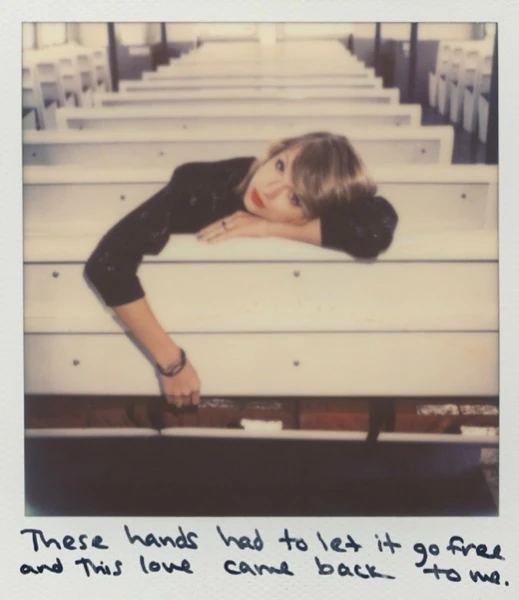 These hands had to let it go free
and This love came back to me.